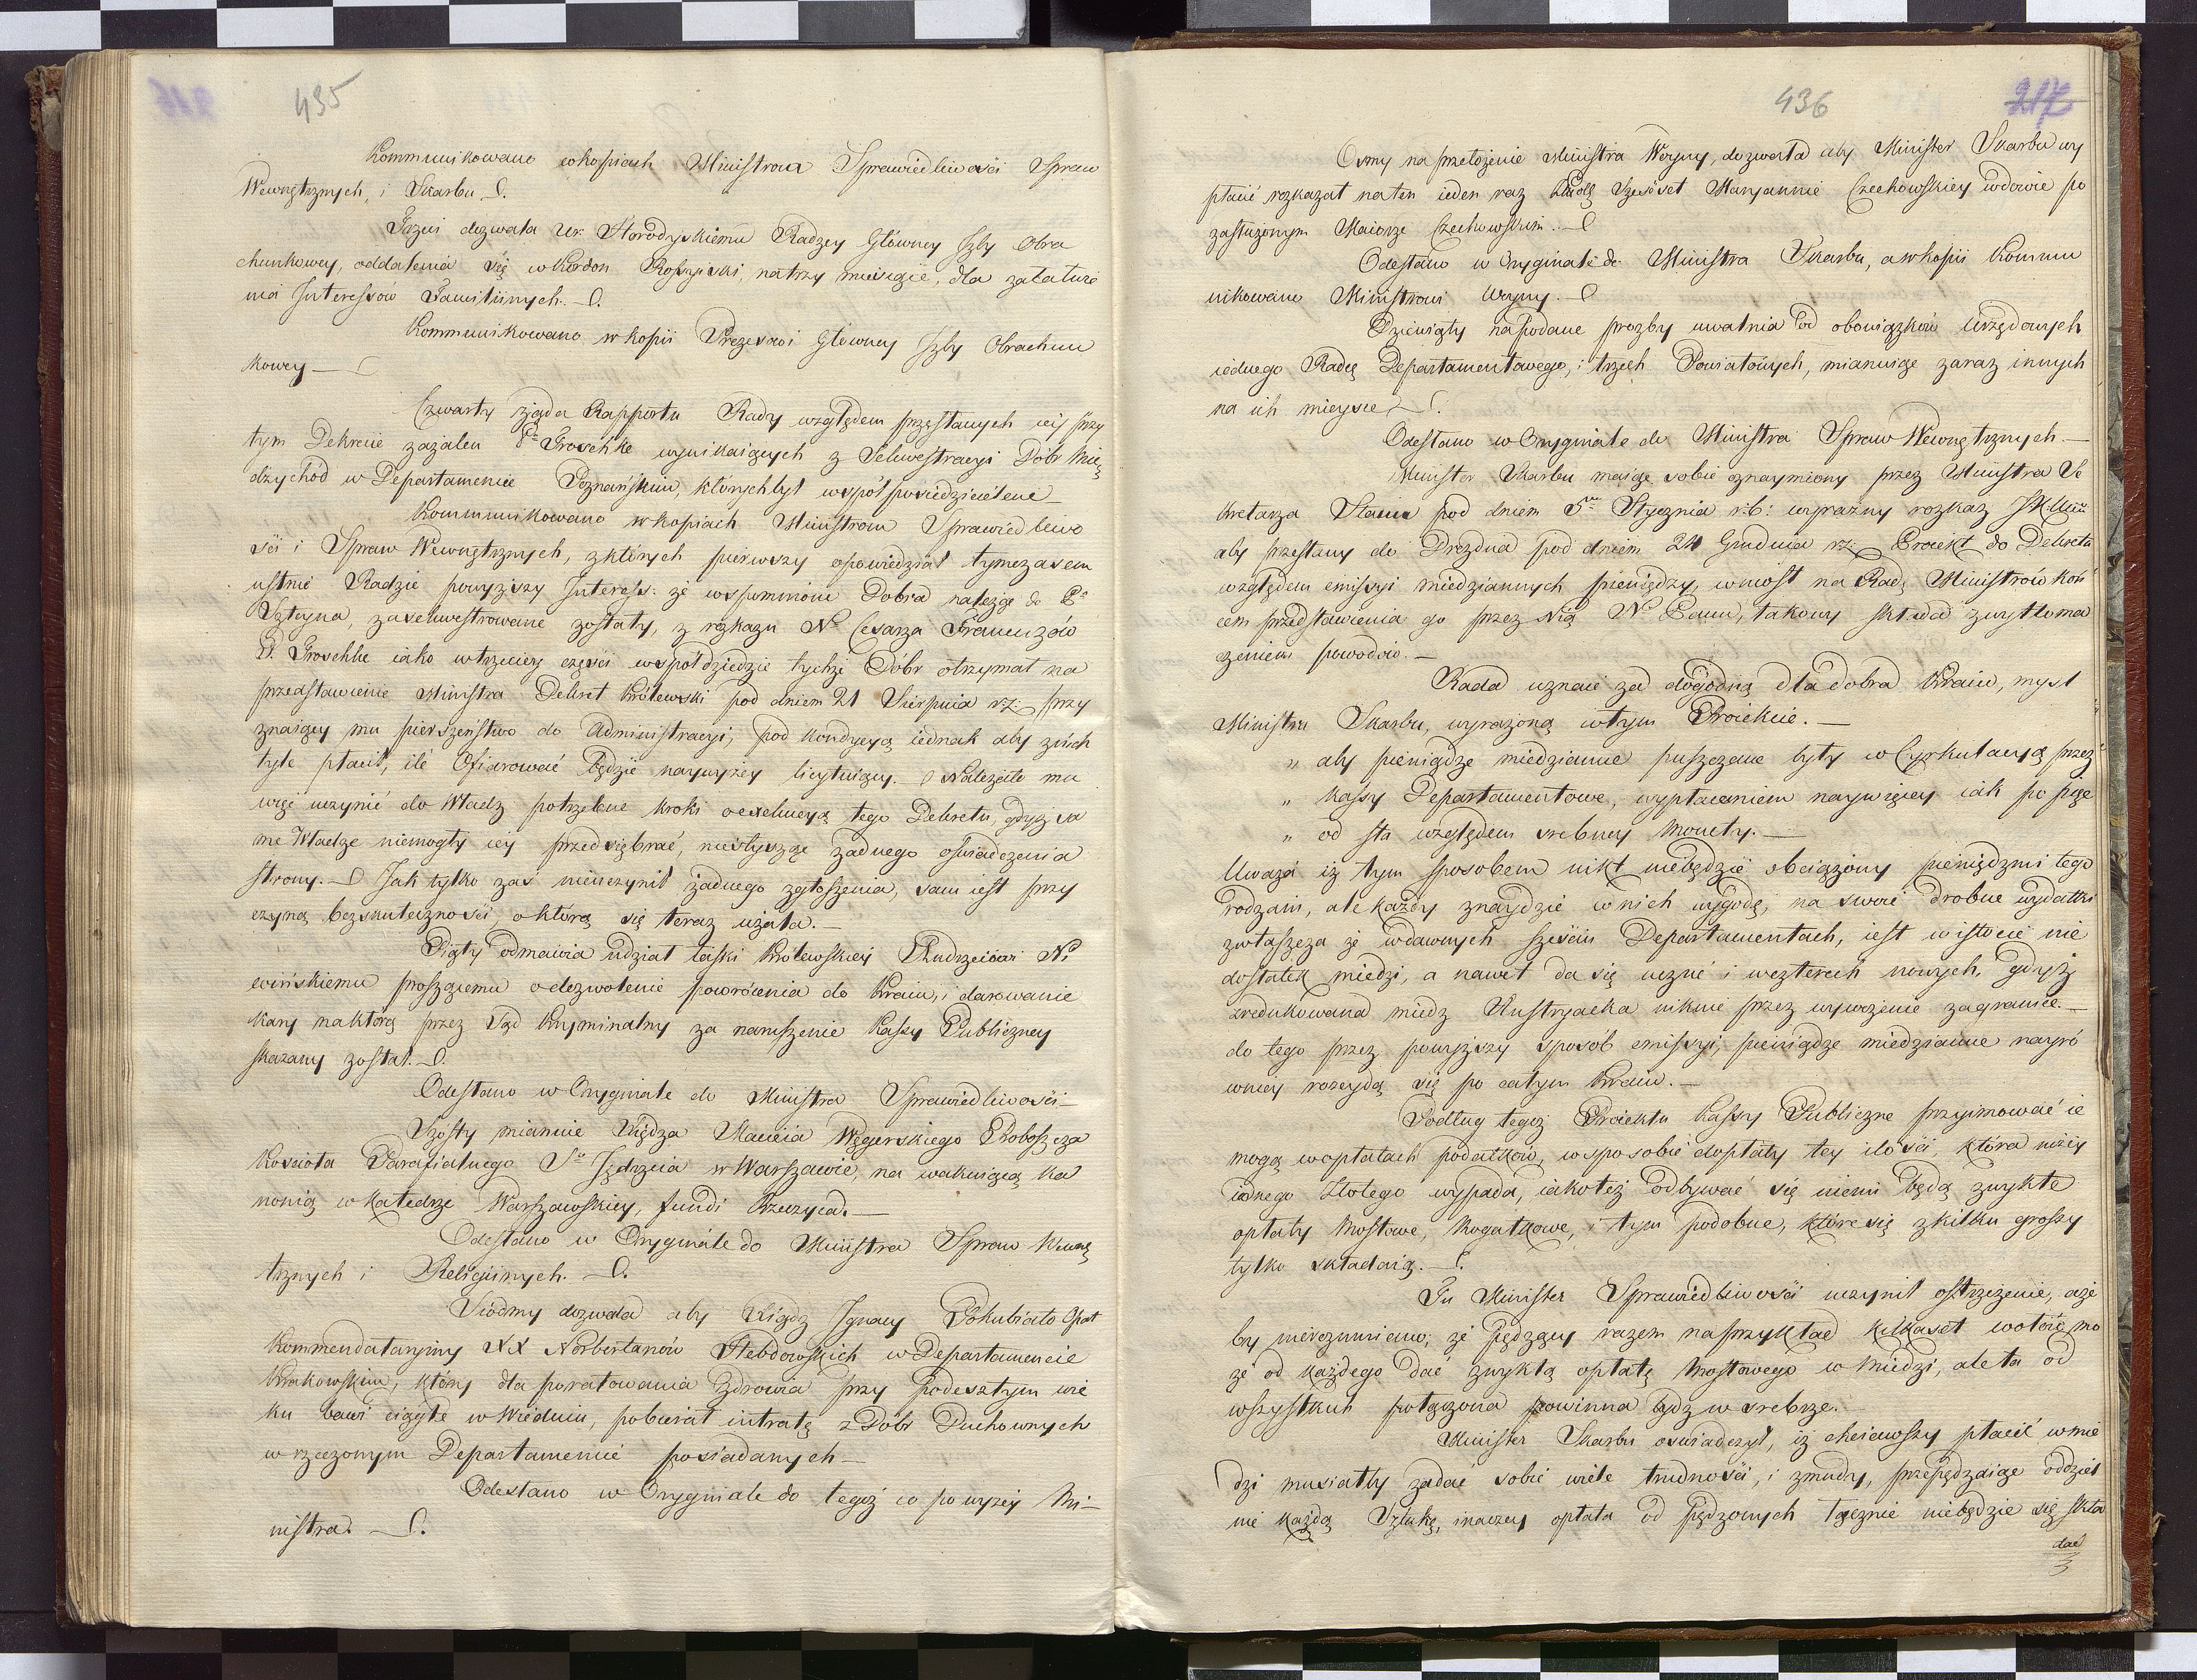 435
Kommunikowano w kopiach Ministrom Sprawiedliwości Spraw
Wewnętrznych, i Skarbu
Trzeci dozwala Ur. Horodyskiemu Radzcy Główney Izby Obra
chunkowey, oddalenia się w Kordon Rossyiski, na trzy miesiące, dla załatwie
nia Interessów Familiinych.
Kommunikowano w kopii Prezesowi Główney Izby Obrachun
kowey
Czwarty żąda Rapportu Rady względem przesłanych iey przy
tym Dekrecie zażaleń Pna Groschke wynikaiących z Sekwestracyi Dóbr Mię
dzychód w Departamencie Poznańskim, których był współposiedzicielem
Kommunikowano w kopiach Ministrom Sprawiedliwo
ści i Spraw Wewnętrznych, z których pierwszy opowiedział tymczasem
ustnie Radzie powyższy Interess: że wspomnione Dobra należące do Pa
Szteyna, zasekwestrowane zostały, z rozkazu N. Cesarza Francuzów
P. Groschke iako w trzeciey części współdziedzic tychże Dóbr otrzymał na
przedstawienie Ministra Dekret Królewski pod dniem 21 Sierpnia r.z. przy
znaiący mu pierszeństwo do Administracyi, pod kondycyą iednak aby z nich
tyle płacił, ile Ofiarować będzie naywyżey licytuiący. Należało mu
więc uczynić do Władz potrzebne kroki o exekucyą tego Dekretu, gdyż sa
me Władze niemogły iey przedsiębrać, niesłysząc żadnego oświadczenia
strony. Jak tylko zaś nieuczynił żadnego zgłoszenia, sam iest przy
czyną bezskuteczności, o którą się teraz użala.
Piąty odmawia udział łaski Królewskiey Andrzeiowi Ni
ewińskiemu proszącemu o dozwolenie powrócenia do Kraiu, i darowanie
kary na którą przez Sąd Kryminalny za naruszenie Kassy Publiczney
skazany został.
Odesłano w Oryginale do Ministra Sprawiedliwości
Szósty mianuie Xiędza Macieia Węgerskiego Proboszcza
Kościoła Parafialnego Sgo Jędrzeia w Warszawie, na wakuiącą ka
nonią w Katedrze Warszawskiey, fundi Krzczyca.
Odesłano w Oryginale do Ministra Spraw Wewnę
trznych i Religiinych.
Siódmy dozwala aby Xiądz Ignacy Pokubiało Opat
Kommendataryiny XX Norbertanów Hebdowskich w Departamencie
Krakowskim, który dla poratowania Zdrowia przy podeszłym wie
ku bawi ciągle w Wiedniu, pobierał intratę z Dóbr Duchownych
w rzeczonym Departamencie posiadanych
Odesłano w Oryginale do tegoż co powyżey Mi-
nistra.
436 217
Osmy na przełożenie Ministra Woyny, dozwala aby Minister Skarbu wy
płacić rozkazał na ten ieden raz Kwotę Sześćset Maryannie Czechowskiey wdowie po
zasłużonym Maiorze Czechowskim.
Odesłano w Oryginale do Ministra Skarbu, a w kopii kommu
nikowano Ministrowi Woyny.
Dziewiąty na podane prozby uwalnia od obowiązków Urzędowych
iednego Radcę Departamentowego, i trzech Powiatowych, mianuiąc zaraz innych
na ich mieysce
Odesłano w Oryginale do Ministra Spraw Wewnętrznych.
Minister Skarbu maiąc sobie oznaymiony przez Ministra Se
kretarza Stanu pod dniem 5m Stycznia r.b: wyraźny rozkaz JKMci
aby przesłany do Drezdna pod dniem 24 Grudnia r.z. Proiekt do Dekretu
względem emissyi miedziannych pieniędzy, wniósł na Radę Ministrów koń
cem przedstawienia go przez Nią N. Panu, takowy składa z wytłoma
czeniem powodów.
Rada uznaie za dogodną dla dobra Kraiu, myśl
Ministra Skarbu, wyrażoną w tym Proiekcie.
„ aby pieniądze miedzianne puszczane były w Cyrkulacyą przez
„ Kassy Departamentowe, wypłacaniem naywięcey iak po pięć
„ od sta względem srebney Monety.
Uważa iż tym sposobem nikt niebędzie obciążony pieniędzmi tego
rodzaiu, ale każdy znaydzie w nich wygodę, na swoie drobne wydatki
zwłaszcza że w dawnych sześciu Departamentach, iest w istocie nie
dostatek miedzi, a nawet da się uczuć i w czterech nowych, gdyż
zredukowana miedź Austryacka niknie przez wywożenie zagranice.
do tego przez powyższy sposób emissyi, pieniądze miedzianne nayró
wniey rozeydą się po całym Kraiu.
Podług tegoż Proiektu Kassy Publiczne przyimować ie
mogą w opłatach podatków, w sposobie dopłaty tey ilości, która niżey
iednego Złotego wypada, iakoteż odbywać się niemi będą zwykłe
opłaty Mostowe, Rogatkowe, i tym podobne, które się z kilku groszy
tylko składaią.
Tu Minister Sprawiedliwości uczynił ostrzeżenie, aże
by nierozumiano, że pędzący razem naprzykład kilkaset wołów, mo
że od każdego dać zwykłą opłatę Mostowego w Miedzi, ale ta od
wszystkich połączona powinna bydź w srebrze.
Minister Skarbu oświadczył, iż chciawszy płacić w mie
dzi musiałby zadać sobie wiele trudności, i zmudy, przepędzaiąc oddziel
nie każdą Sztukę, inaczey opłata od pędzonych łącznie niebędzie się skła
dać